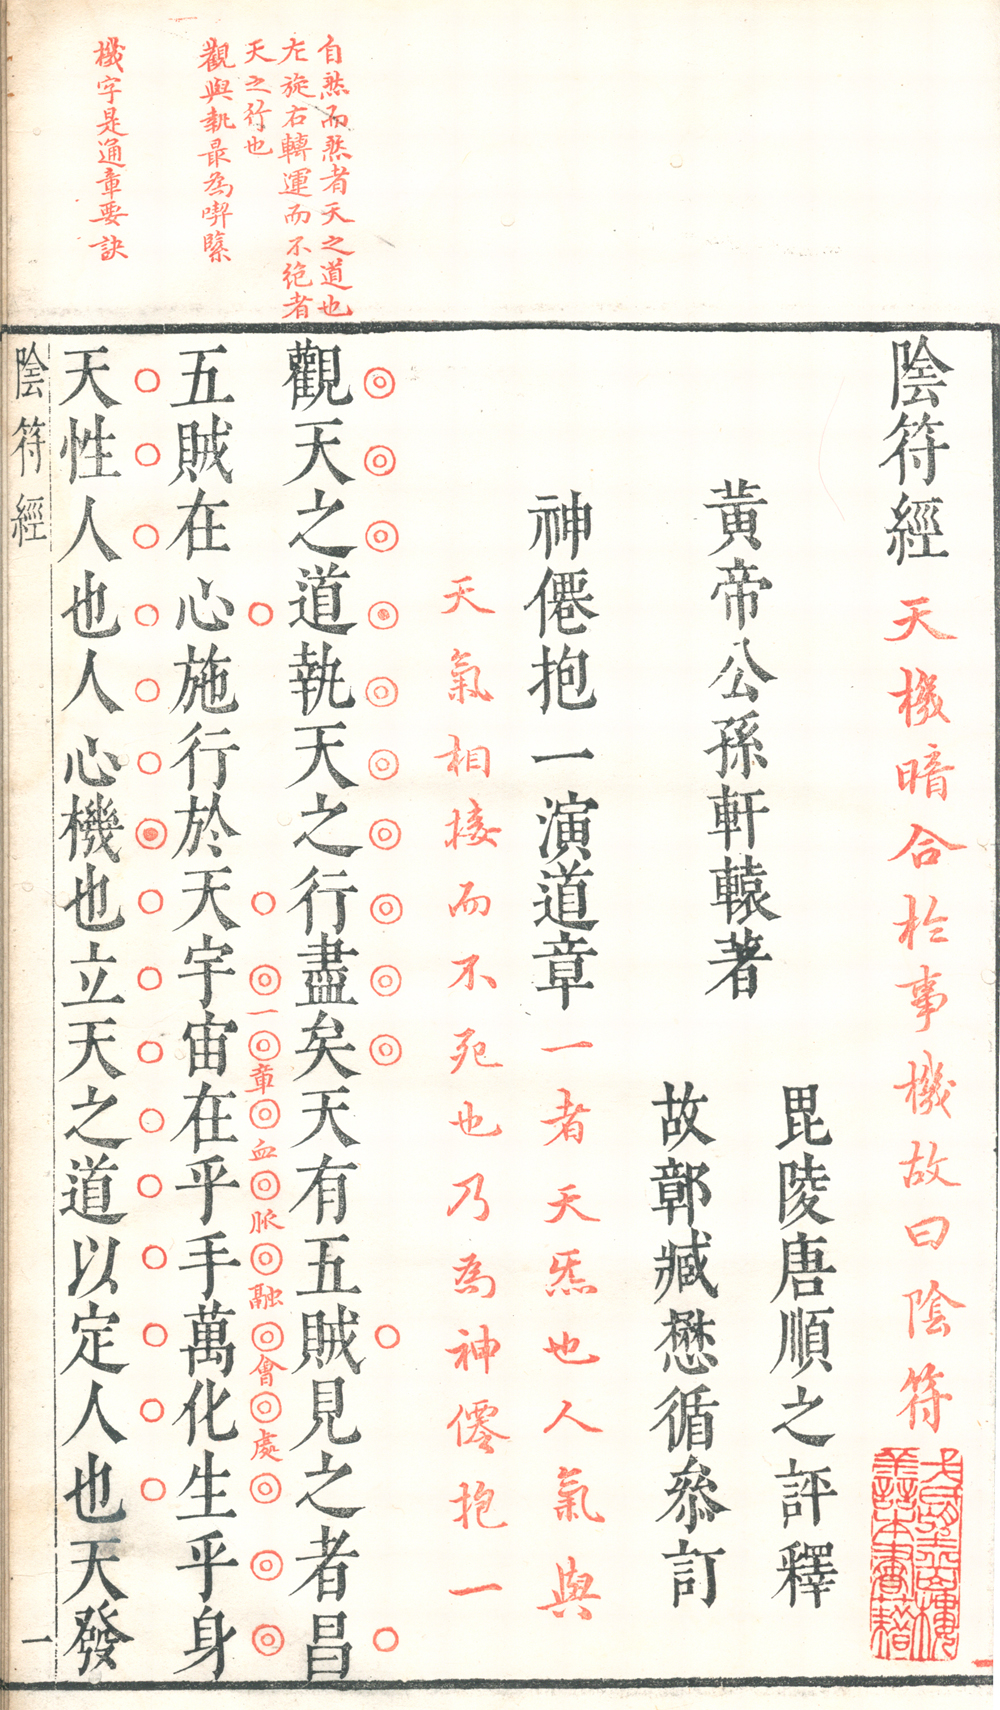 自然而然者天之道也
左旋右轉運而不絶者
天之行也
觀與執最為喫緊
機字是通章要訣
陰符經
天機暗合於事機故曰陰符
黃帝公孫軒轅著
毘陵唐順之評釋
故鄣臧懋循叅訂
神僊抱一演道章
一者天炁也人氣與
天氣相接而不死也乃為神僊抱一
觀天之道執天之行盡矣天有五賊見之者昌
五賊在心施行於天宇宙在乎手萬化生乎身
一章血脈融會處
天性人也人心機也立天之道以定人也天發
陰符經
一